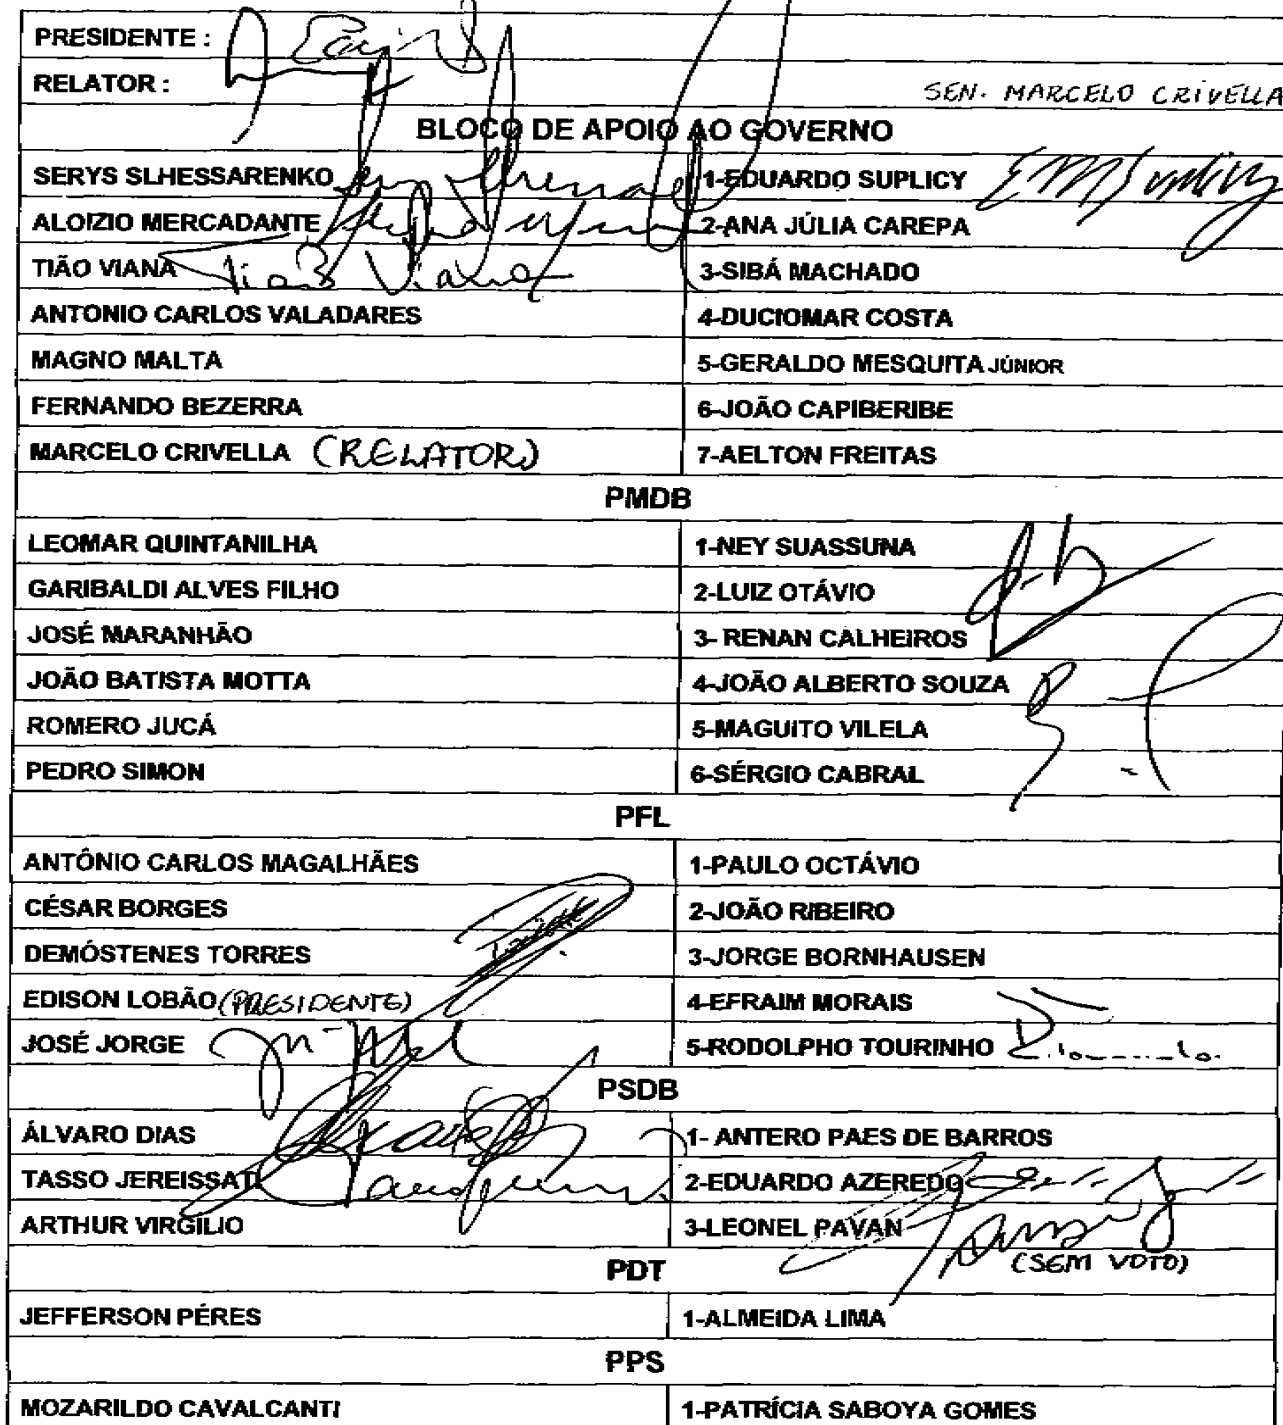 PRESIDENTE :
RELATOR : SEN. MARCELO CRIVELLA
BLOCO DE APOIO AO GOVERNO
SERYS SLHESSARENKO 1-EDUARDO SUPLICY
ALOIZIO MERCADANTE 2-ANA JÚLIA CAREPA
TIÃO VIANA Tião Viana 3-SIBÁ MACHADO
ANTONIO CARLOS VALADARES 4-DUCIOMAR COSTA
MAGNO MALTA 5-GERALDO MESQUITA JÚNIOR
FERNANDO BEZERRA 6-JOÃO CAPIBERIBE
MARCELO CRIVELLA (RELATOR) 7-AELTON FREITAS
PMDB
LEOMAR QUINTANILHA 1-NEY SUASSUNA
GARIBALDI ALVES FILHO 2-LUIZ OTÁVIO
JOSÉ MARANHÃO 3- RENAN CALHEIROS
JOÃO BATISTA MOTTA 4-JOÃO ALBERTO SOUZA
ROMERO JUCÁ 5-MAGUITO VILELA
PEDRO SIMON 6-SÉRGIO CABRAL
PFL
ANTÔNIO CARLOS MAGALHÃES 1-PAULO OCTÁVIO
CÉSAR BORGES 2-JOÃO RIBEIRO
DEMÓSTENES TORRES 3-JORGE BORNHAUSEN
EDISON LOBÃO (PRESIDENTE) 4-EFRAIM MORAIS
JOSÉ JORGE 5-RODOLPHO TOURINHO
PSDB
ÁLVARO DIAS 1- ANTERO PAES DE BARROS
TASSO JEREISSATI 2-EDUARDO AZEREDO
ARTHUR VIRGÍLIO 3-LEONEL PAVAN
(SEM VOTO)
PDT
JEFFERSON PÉRES 1-ALMEIDA LIMA
PPS
MOZARILDO CAVALCANTI 1-PATRÍCIA SABOYA GOMES